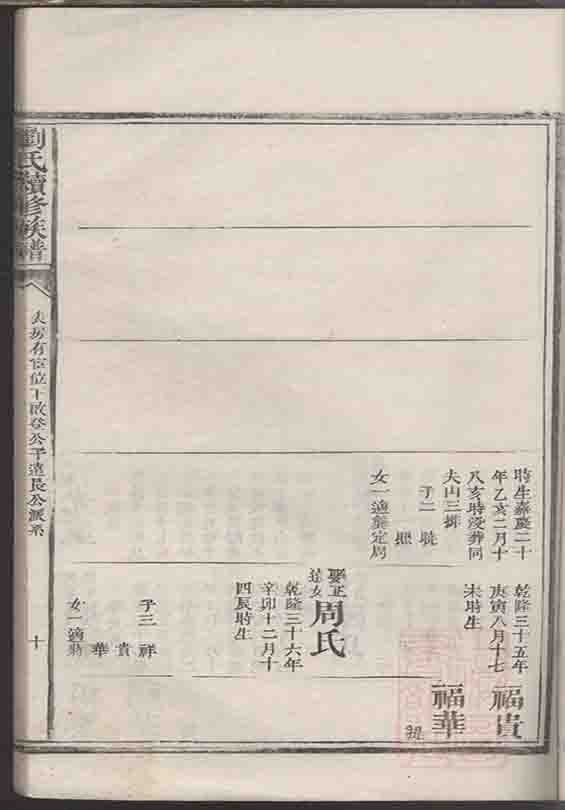 劉氏續修族譜
房有官位下啟登公子達良公派系
十
時生嘉慶二十
年乙亥二月十
八亥時沒葬同
夫山三排
子二
熙
女一適龔定局
乾隆三十五年
庚寅八月十七
未時生
娶正
達女
周氏
乾隆三十六年
辛卯十二月十
四辰時生
子三 祥
貴
華
女一適
福貴
福華